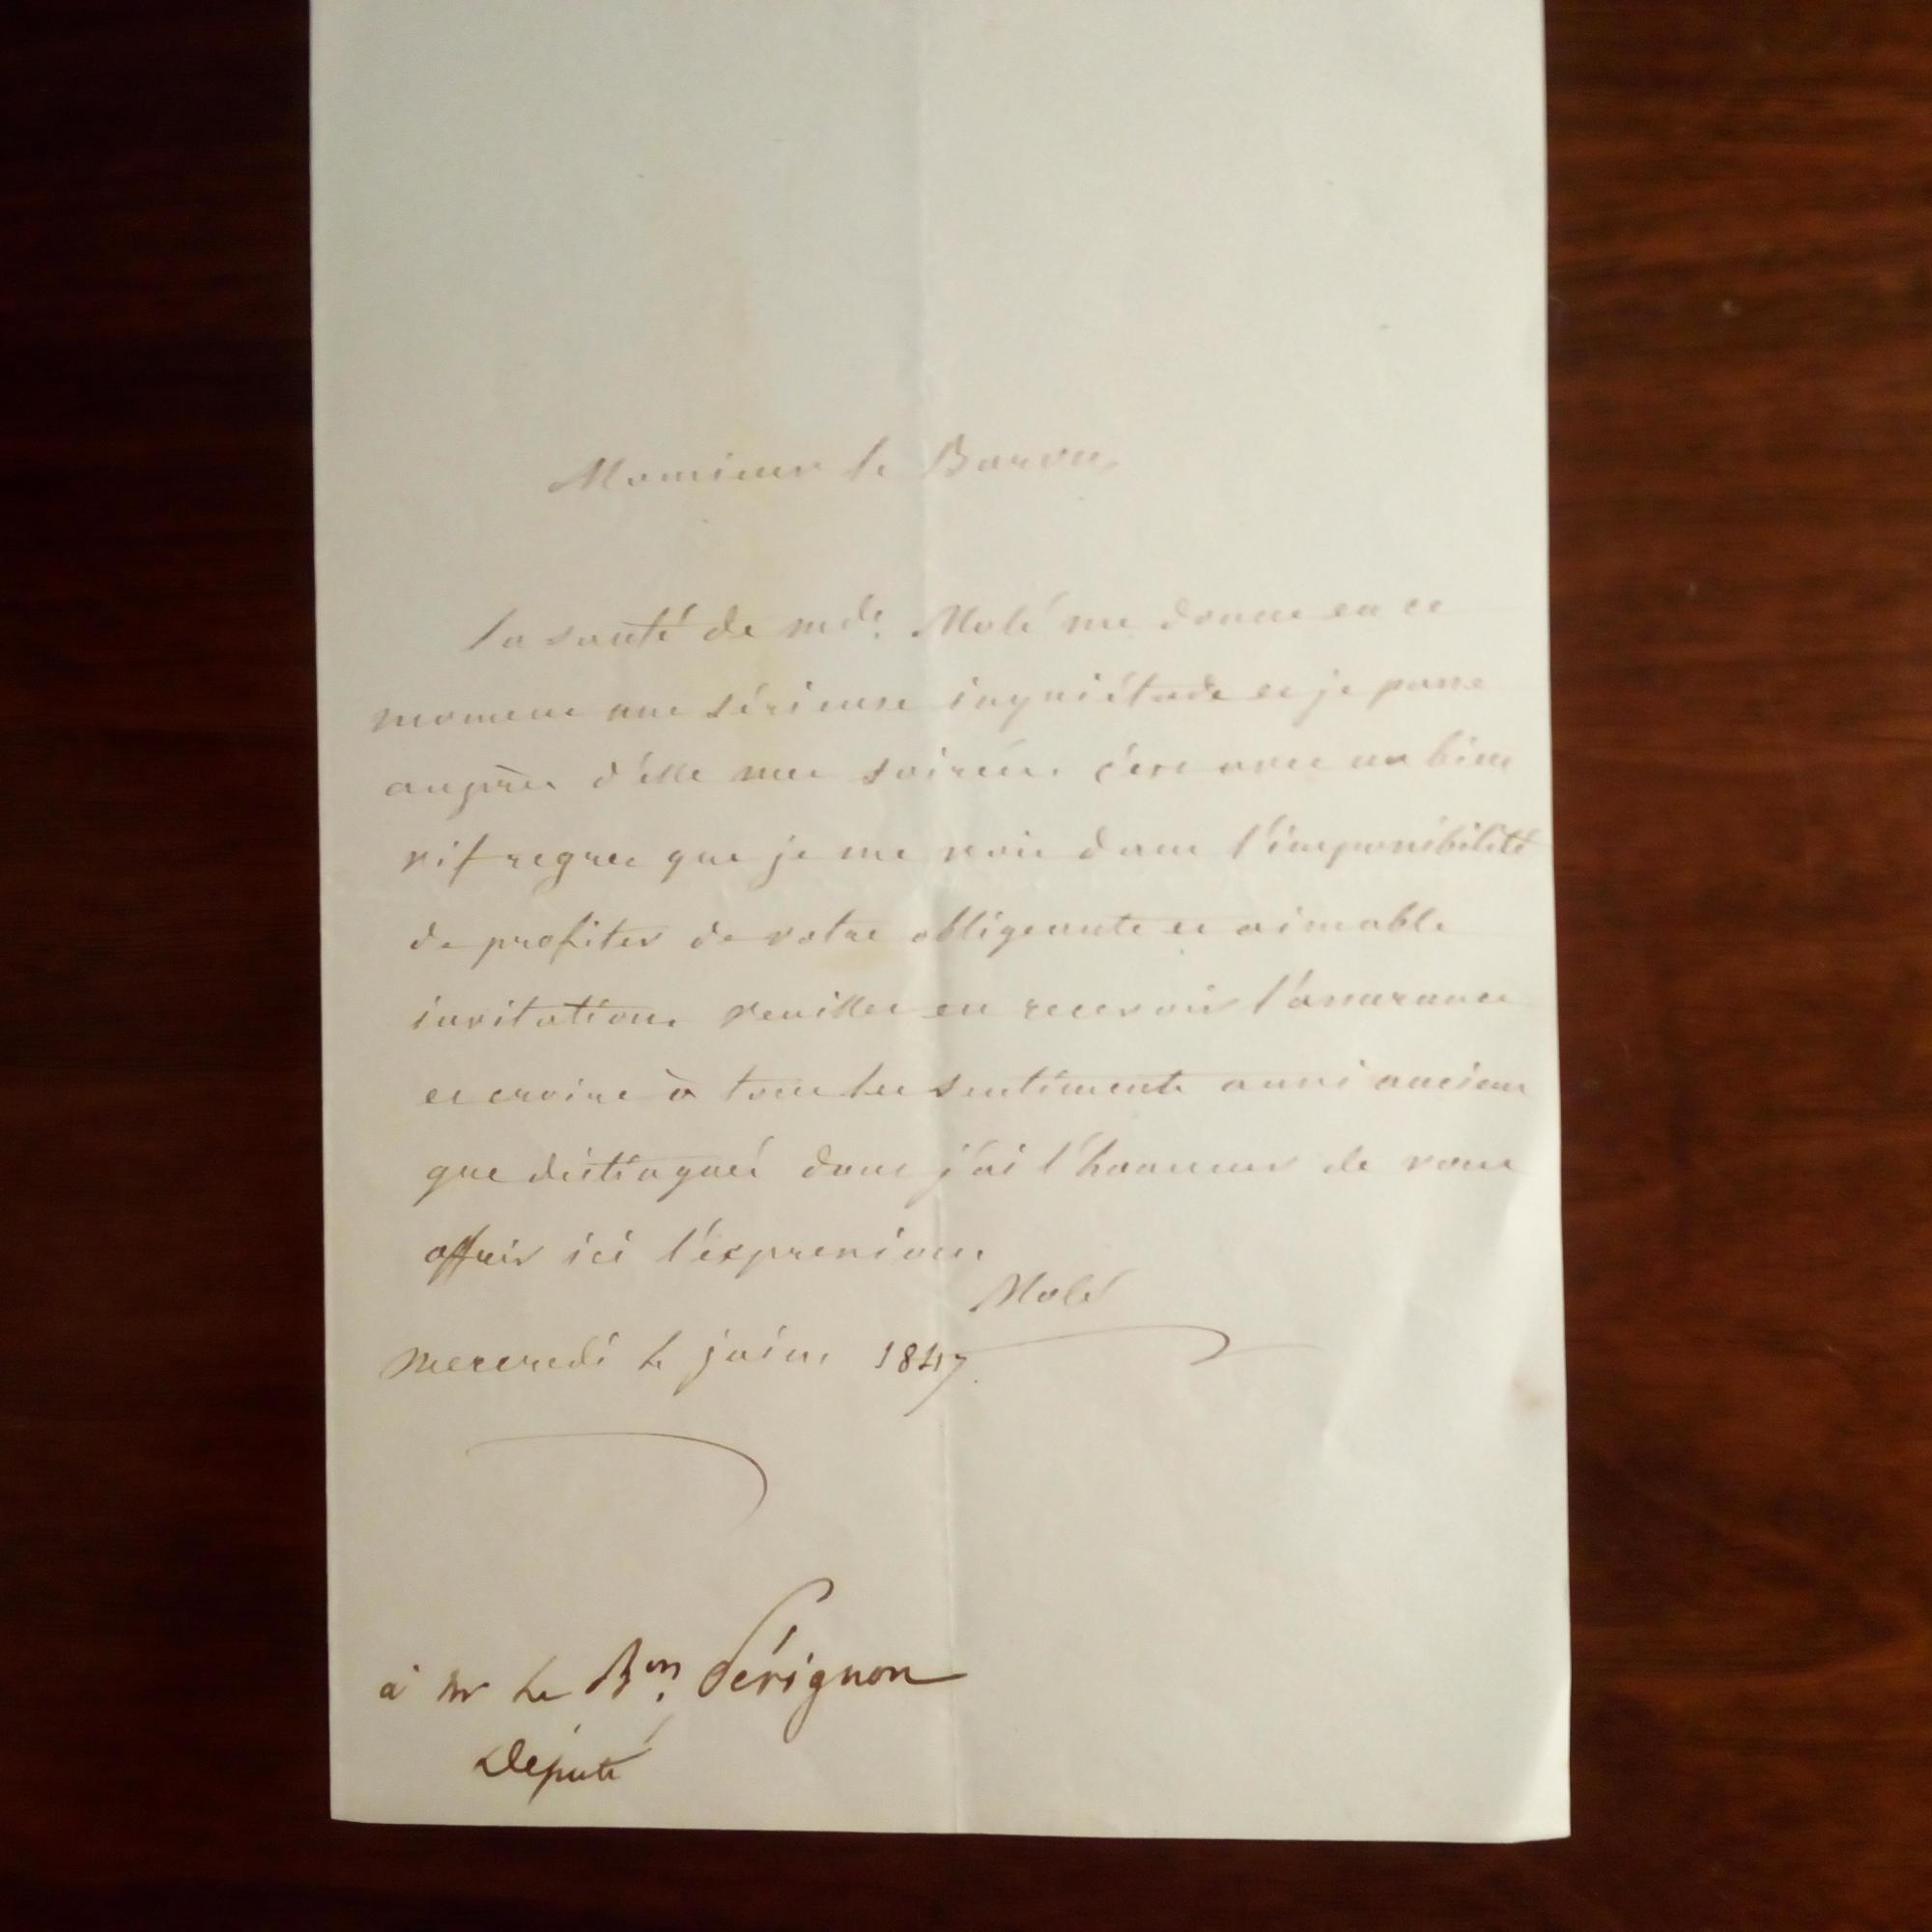 Monsieur le Baron,
la santé de mde. Molé me donne en ce
moment une sérieuse inquiétude et je passe
auprès d'elle mes soirées. c'est avec un bien
vif regret que je me vois dans l'impossibilité
de profiter de votre obligeante et aimable
invitation. veuillez en recevoir l'assurance
et croire à tous les sentiments aussi anciens
que distingués dont j'ai l'honneur de vous
offrir ici l'expression.
Molé
mercredi juin 1847.
à mr le Bon. Pérignon
Député